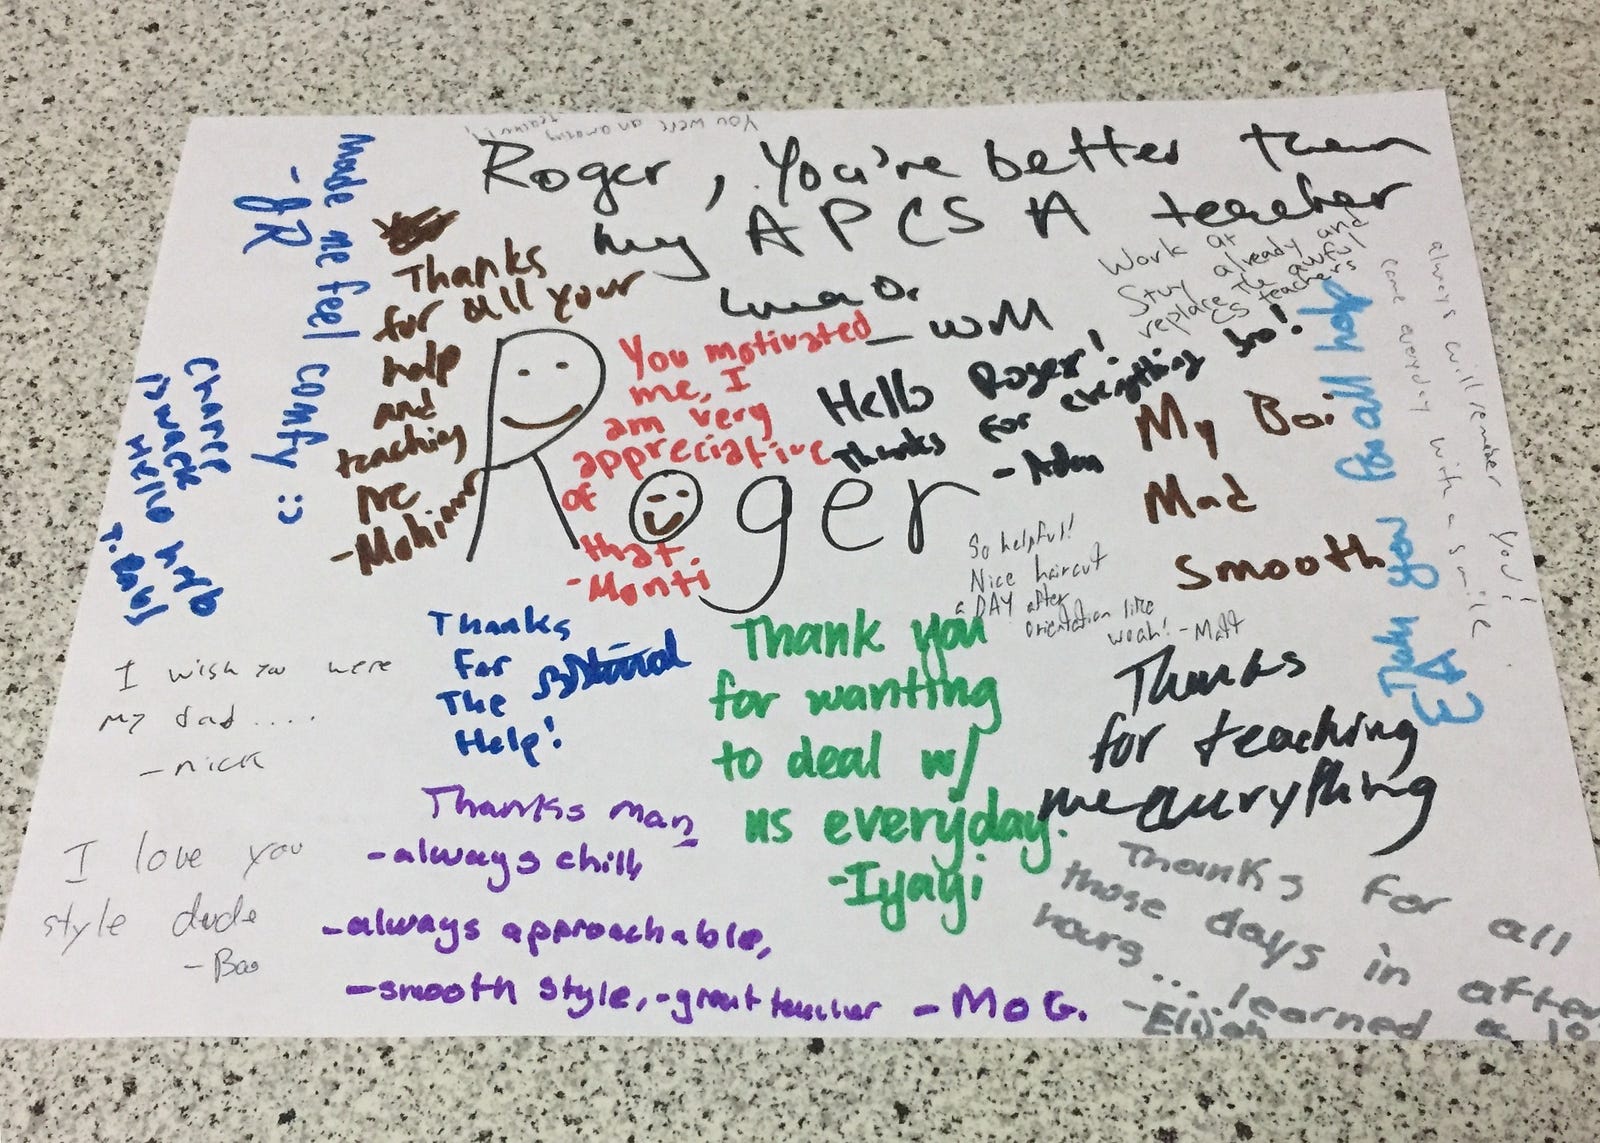 You were an amazing
teacher!!
Roger, You're better than
my APCS A teacher
— WM
Made me feel comfy :)
- JR
Thanks
for all your
help
and
teaching
me
-Mohimur
You motivated
me, I
am very
appreciative
of
that.
-Monti
Roger
Hello Roger!
Thanks for everything bro!
-Adam
Work at
Stuy already and
replace the awful
CS teachers
My Boi
Mad
Smooth
for all help
EA
always will remember you!
came everyday with a smile
Chance
to work
Hello help
So helpful!
Nice haircut
a DAY after
orientation like
woah! -Matt
Thanks
For
The
Help!
Thank you
for wanting
to deal w/
us everyday.
-Iyagi
Thanks
for teaching
me everything
I wish you were
my dad....
-nick
I love you
style dude
-Bao
Thanks man
-always chill
-always approachable,
-smooth style, -great teacher -MoG.
Thanks for all
those days in after
hours... learned a lo
-Elijah